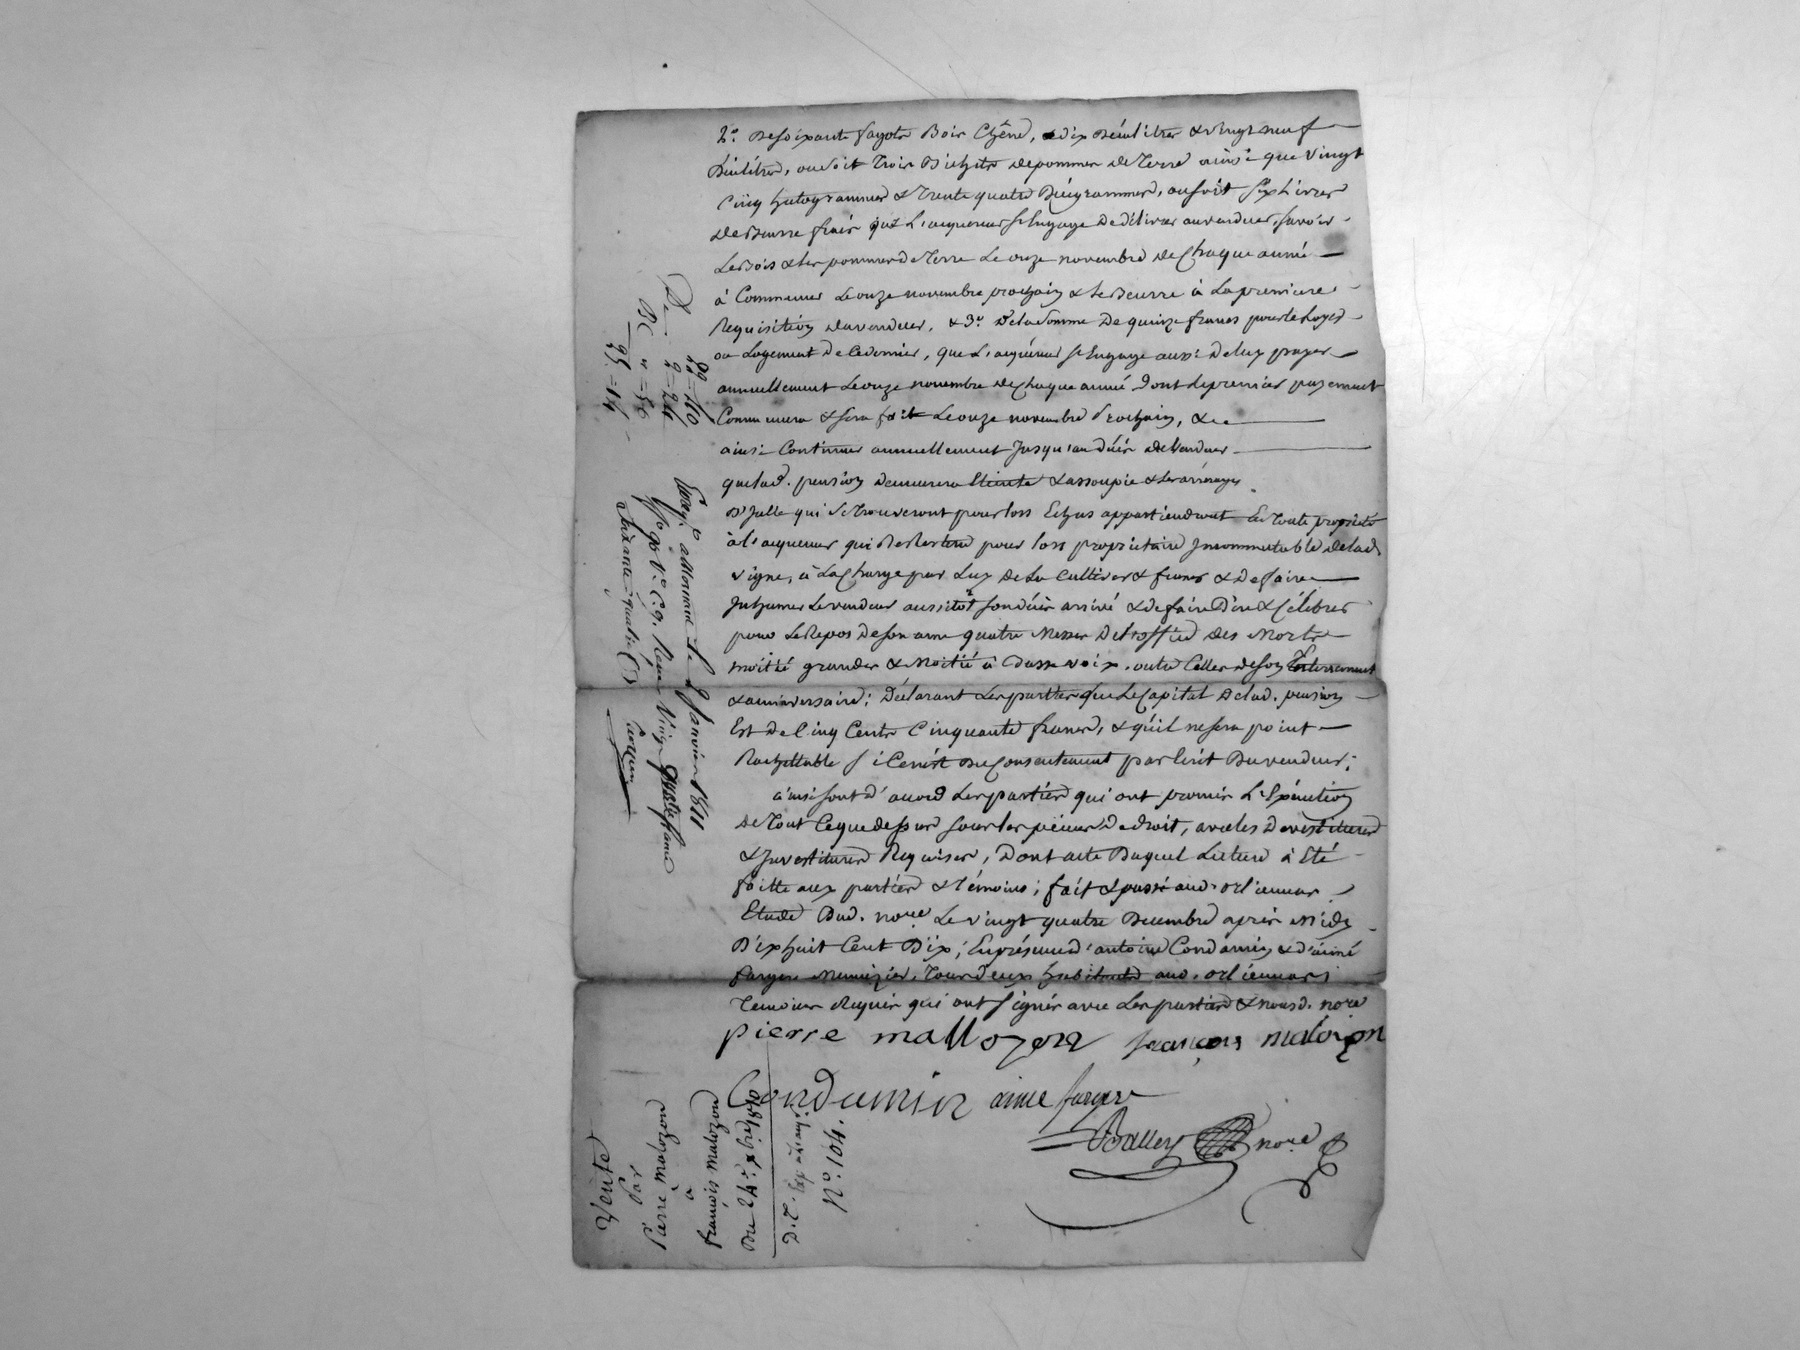 2.° De soixante fagots Bois Chêne, dix Décalitres & vingt neuf
Décilitres, ou soit trois Bichets de pommes de Terre ainsi que vingt
Cinq hectogrammes & trente quatre Décigrammes, ou soit six Livres
de Beurre frais que L'acquereur s'Engage de délivrer au vendeur, savoir
Le Bois & les pommes de Terre Le onze novembre de Chaque année
à Commencer Le onze novembre prochain & le Beurre à La premiere
Requisition du vendeur, & 3.° de la somme de quinze francs pour le Loyer
ou Logement de Ce dernier, que L'acquéreur s'Engage aussi de luy payer
annuellement Le onze novembre de Chaque année dont le premier payement
Commencera & sera fait Le onze novembre Prochain, & de
ainsi Continuer annuellement Jusqu'au décès du Vendeur
que lad. pension demeurera Eteinte & assoupie & les arrérages
D'Jcelle qui se trouveront pour lors Echus appartiendront En toute propriété
à l'acquereur qui Restera pour lors propriétaire Jncommutable de lad.
vigne, à La Charge par Luy de La Cultiver & fumer & de faire
Jnhumer Le vendeur aussitôt son décès arrivé & de faire Dire & Célébrer
pour Le Repos de son ame quatre Messes de L'office des Morts
moitié grandes & Moitié à Basse voix, outre Celles de son Enterrement
& anniversaire; Déclarant Les parties que Le Capital de lad. pension
Est de Cinq Cents Cinquante francs, & qu'il ne sera point
Rachettable si Ce n'est du Consentement par Ecrit du vendeur;
ainsi sont d'accord Les parties qui ont promis L'Exécution
de tout Ce que dessus sous les peines de droit, avec les Devestitures
& Jnvestitures Requises, Dont acte Duquel Lecture à Eté
faitte aux parties & témoins; fait & passé aud. orlienas
Etude Dud. nore Le vingt quatre Decembre après Midy
Dix huit Cent Dix; En présence d'antoine Condamin & d'aimé
farges Menuizier, tous deux habitants aud. orlienas;
Temoins Requis qui ont signé avec Les parties & nousd. nore
pierre mallozon françois malozon
Condamin aimé farges
Balley nore
22 = 40
De 2 = 24
BC " = 50
25 = 14
Enreg.t à Mornant le 2 Janvier 1811
f° 98 V° C. 9. Reçu Vingt quatre francs
Soixante-quatre C.
Vente
Par
Pierre Malozon
à
françois Malozon
Du 24. xbre 1810
N° 104.